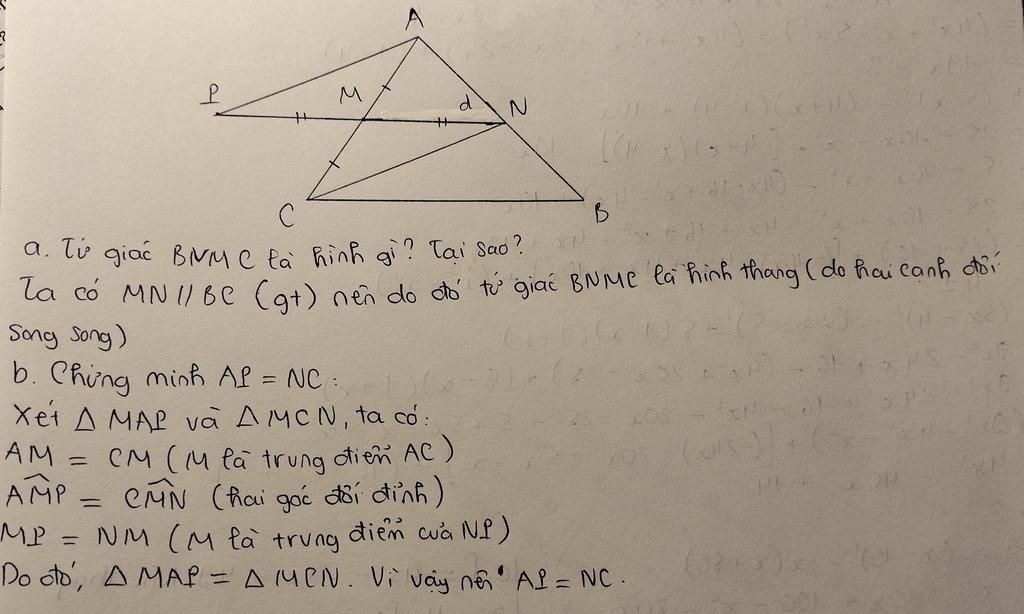 A
P
M
d
N
C
B
a. Tứ giác BNMC là hình gì? Tại sao?
Ta có MN//BC (gt) nên do đó tứ giác BNMC là hình thang (do hai cạnh đối
song song)
b. Chứng minh AP = NC:
Xét △ MAP và △ MCN, ta có:
AM = CM (M là trung điểm AC)
AMP = CMN (hai góc đối đỉnh)
MP = NM (M là trung điểm của NP)
Do đó, △ MAP = △ MCN. Vì vậy nên AP = NC.